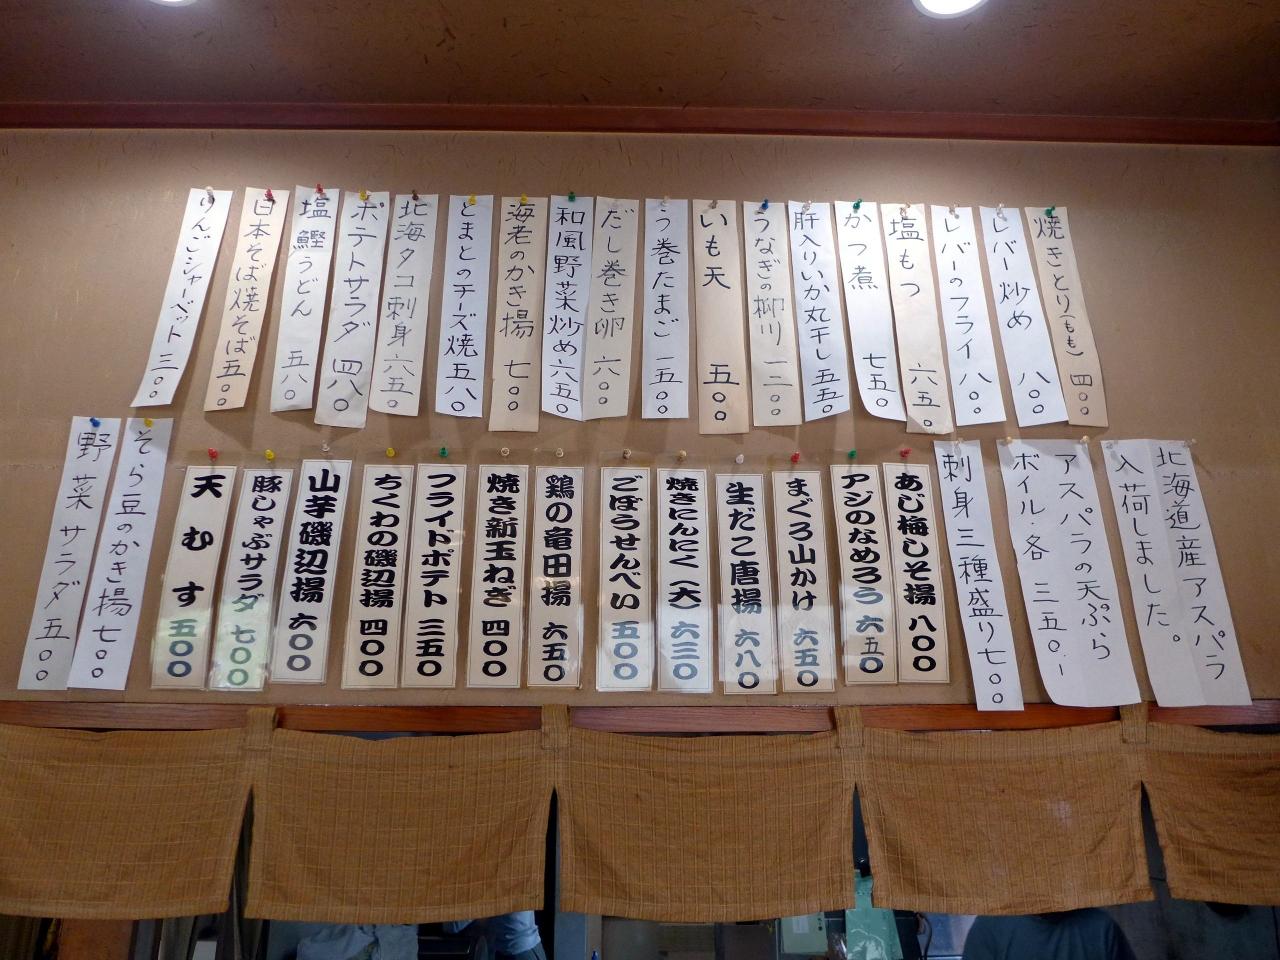 焼きとり(もも) 四〇〇
レバー炒め 八〇〇
レバーのフライ 八〇〇
塩もつ 六五〇
かつ煮 七五〇
肝入りいか丸干し 五五〇
うなぎの柳川 一二〇〇
いも天 五〇〇
う巻たまご 一五〇〇
だし巻き卵 六〇〇
和風野菜炒め 六五〇
海老のかき揚 七〇〇
とまとのチーズ焼 五八〇
北海タコ刺身 六五〇
ポテトサラダ 四八〇
塩鰹うどん 五八〇
日本そば焼そば 五〇〇
りんごシャーベット 三〇〇
北海道産アスパラ
入荷しました。
アスパラの天ぷら
ボイル・各 三五〇.-
刺身三種盛り 七〇〇
あじ梅しそ揚 八〇〇
アジのなめろう 六五〇
まぐろ山かけ 六五〇
生だこ唐揚 六八〇
焼きにんにく(大) 六三〇
ごぼうせんべい 五〇〇
鶏の竜田揚 六五〇
焼き新玉ねぎ 四〇〇
フライドポテト 三五〇
ちくわの磯辺揚 四〇〇
山芋磯辺揚 六〇〇
豚しゃぶサラダ 七〇〇
天むす 五〇〇
そら豆のかき揚 七〇〇
野菜サラダ 五〇〇